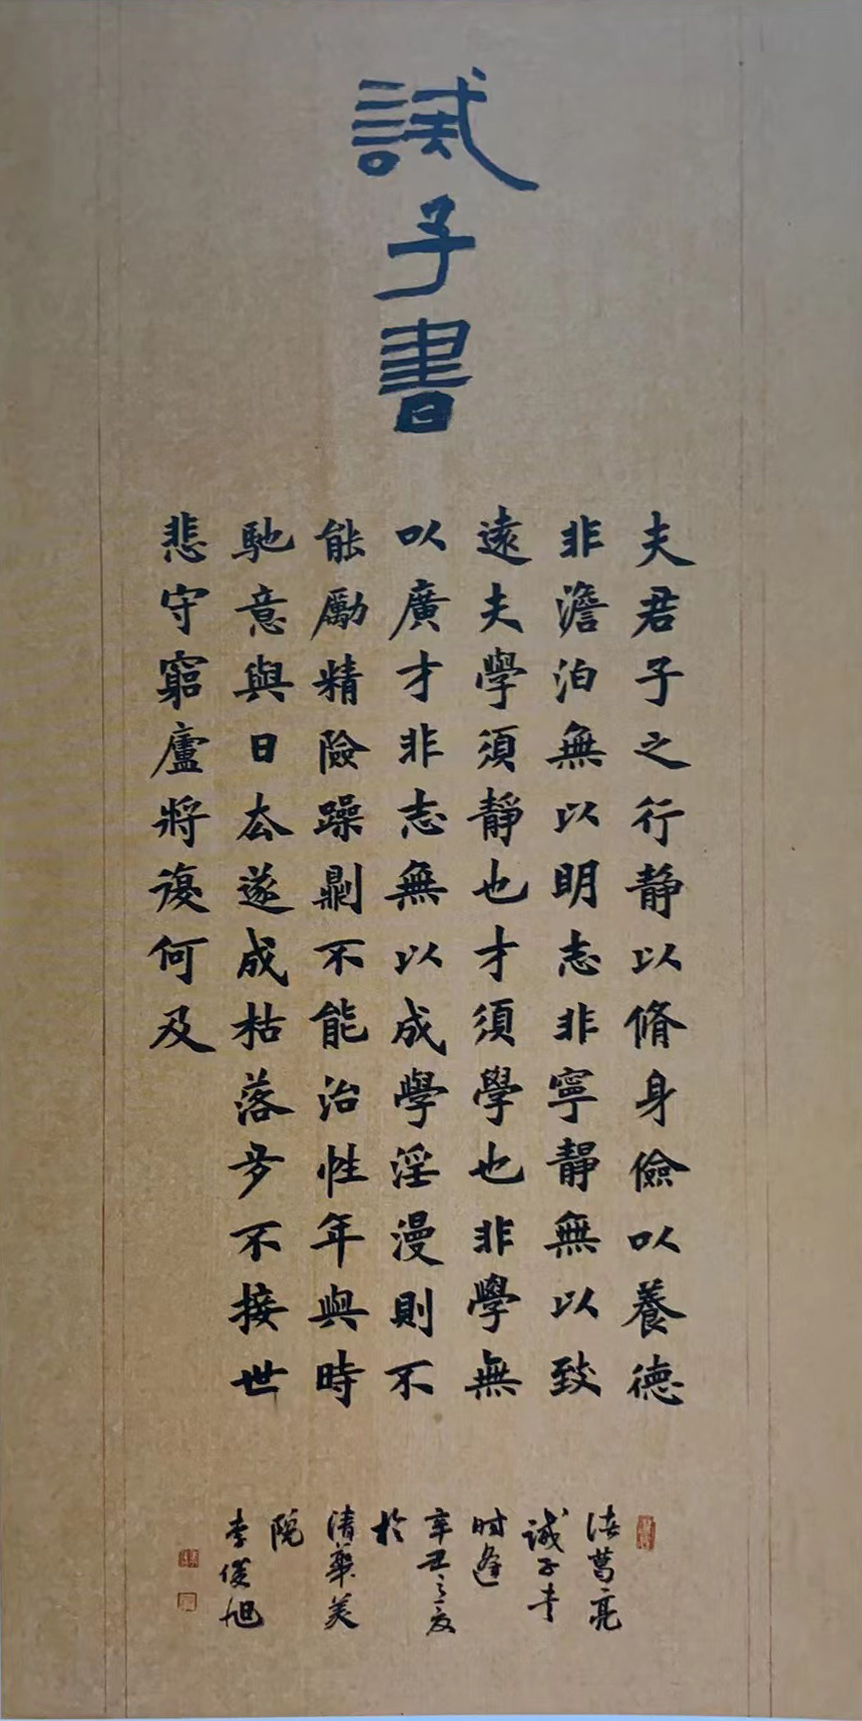 誡子書
夫君子之行静以脩身儉以養德
非澹泊無以明志非寧靜無以致
遠夫學須靜也才須學也非學無
以廣才非志無以成學淫漫則不
能勵精險躁則不能治性年與時
馳意與日去遂成枯落多不接世
悲守窮廬將復何及
诸葛亮
诫子书
时逢
辛丑之夏
於
清華美
院
李俊旭